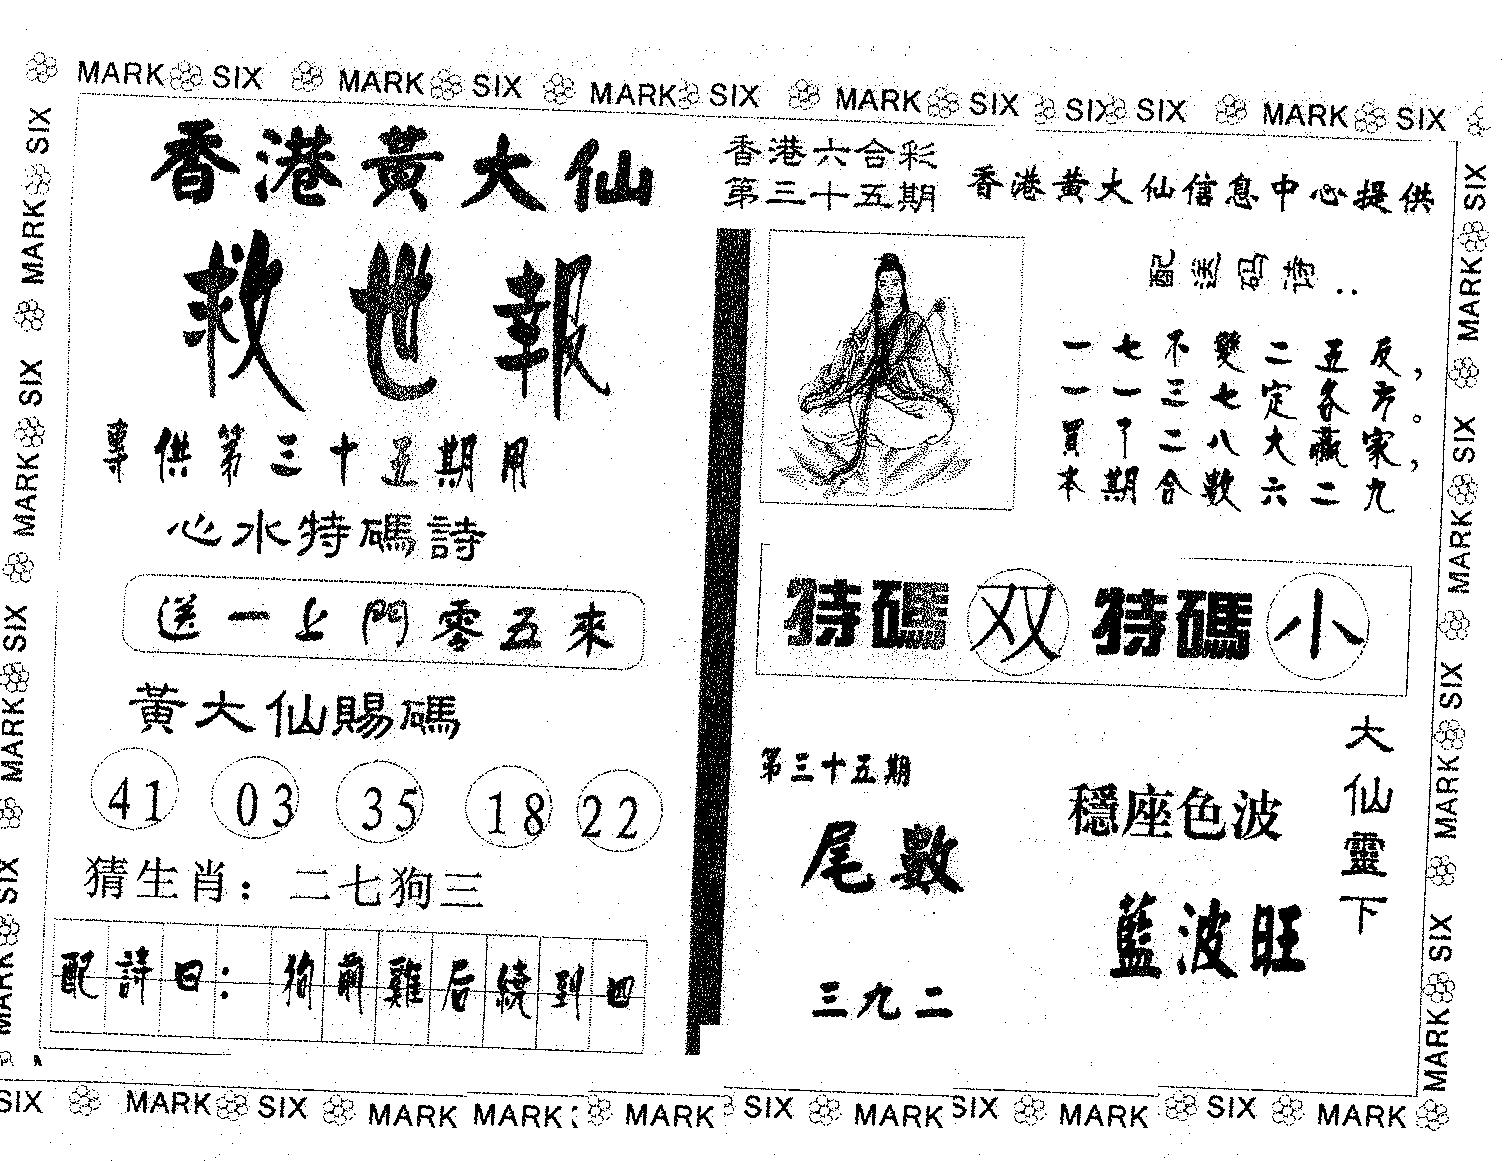 MARK SIX MARK SIX MARK SIX MARK SIX SIX SIX MARK SIX
香港黃大仙
救世報
專供第三十五期用
心水特碼詩
送一上門零五來
黃大仙賜碼
41 03 35 18 22
猜生肖：二七狗三
配詩曰：狗前雞后續到四
香港六合彩
第三十五期
香港黃大仙信息中心提供
配送码诗..
一七不雙二五反，
一一三七定各方。
買了二八大贏家，
本期合數六二九
特碼 双 特碼 小
第三十五期
尾數
三九二
穩座色波
藍波旺
大仙靈下
MARK SIX MARK SIX MARK SIX MARK SIX
MARK SIX MARK SIX MARK SIX MARK SIX
SIX MARK SIX MARK MARK MARK SIX MARK SIX MARK SIX MARK